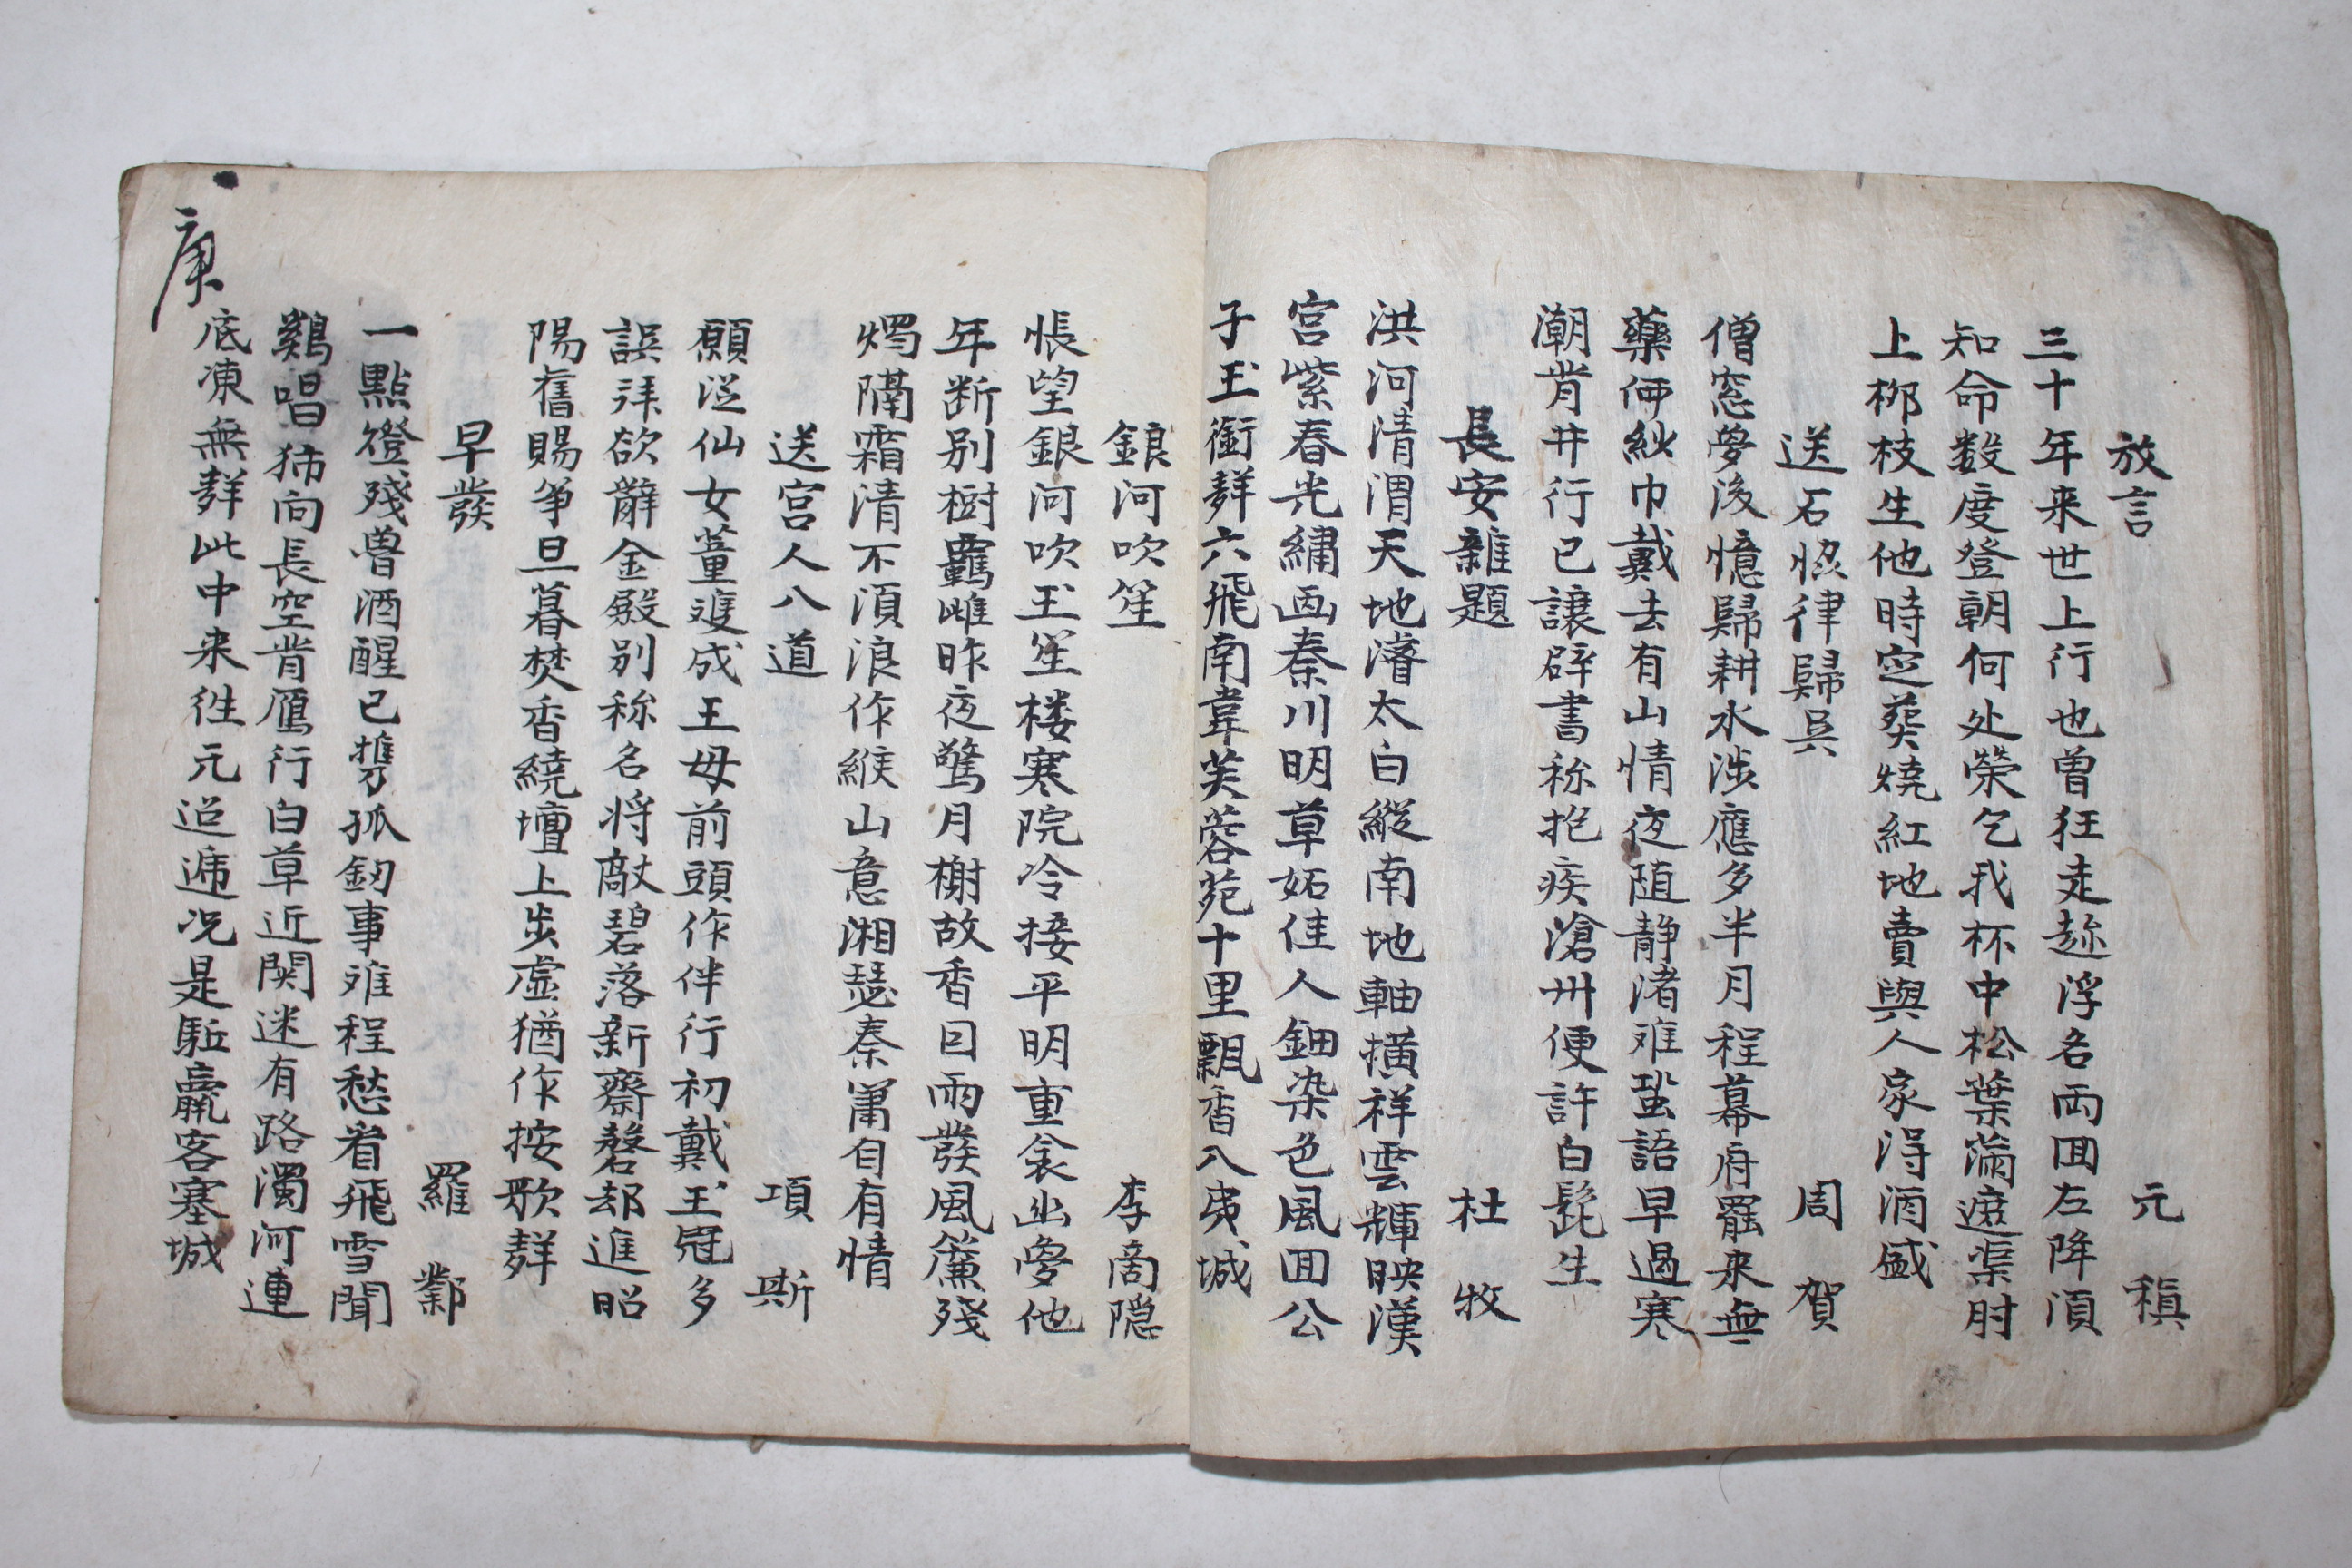 放言 元稹
三十年来世上行也曾狂走趂浮名兩囬左降湏
知命数度登朝何处榮乞我杯中松葉滿遮渠肘
上桞枝生他時㝎葬燒紅地賣與人家淂酒盛
送石協律歸吳 周賀
僧窓夢後憶歸耕水涉應多半月程幕府罷来無
藥価紗巾戴去有山情夜随静渚难蛩語早過寒
潮背井行已讓辟書称抱疾滄州便許白髭生
長安雜題 杜牧
洪河清渭天地濬太白縱南地軸橫祥雲輝映漢
宫紫春光繡画秦川明草妬佳人鈿染色風囬公
子玉銜聲六飛南韋芙蓉苑十里飄香入夷城
銀河吹笙 李商隠
悵望銀河吹玉笙楼寒院冷接平明重衾幽夢他
年断别樹羈雌昨夜驚月榭故香因雨發風簾殘
燭隔霜清不湏浪作緱山意湘瑟秦簫自有情
送宫人入道 項斯
願從仙女董雙成王母前頭作伴行初戴玉冠多
誤拜欲辭金殿别称名将敲碧落新齋磬却進昭
陽舊賜爭旦暮焚香繞壇上步虚猶作按歌聲
早發 羅鄴
一點燈殘魯酒醒已携孤釼事难程愁看飛雪聞
鷄唱㹃向長空背鴈行白草近関迷有路濁河連
底凍無聲此中来徃元迢遰况是駈羸客塞城
庚